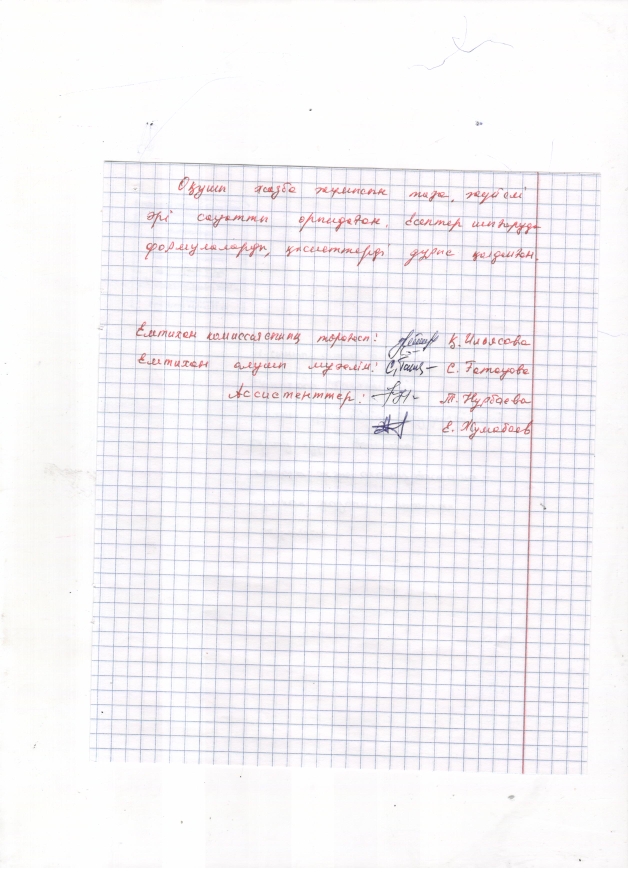 Оқушы жазба жұмысын таза, жүйелі
әрі сауатты орындаған. Есептер шығаруда
формулаларды, қасиеттерді дұрыс қолданған.
Емтихан комиссиясының төрағасы: Қ. Ильясова
Емтихан алушы мұғалім: С. Татаубаева
Ассистенттер: М. Нурбаева
Е. Жумабаев